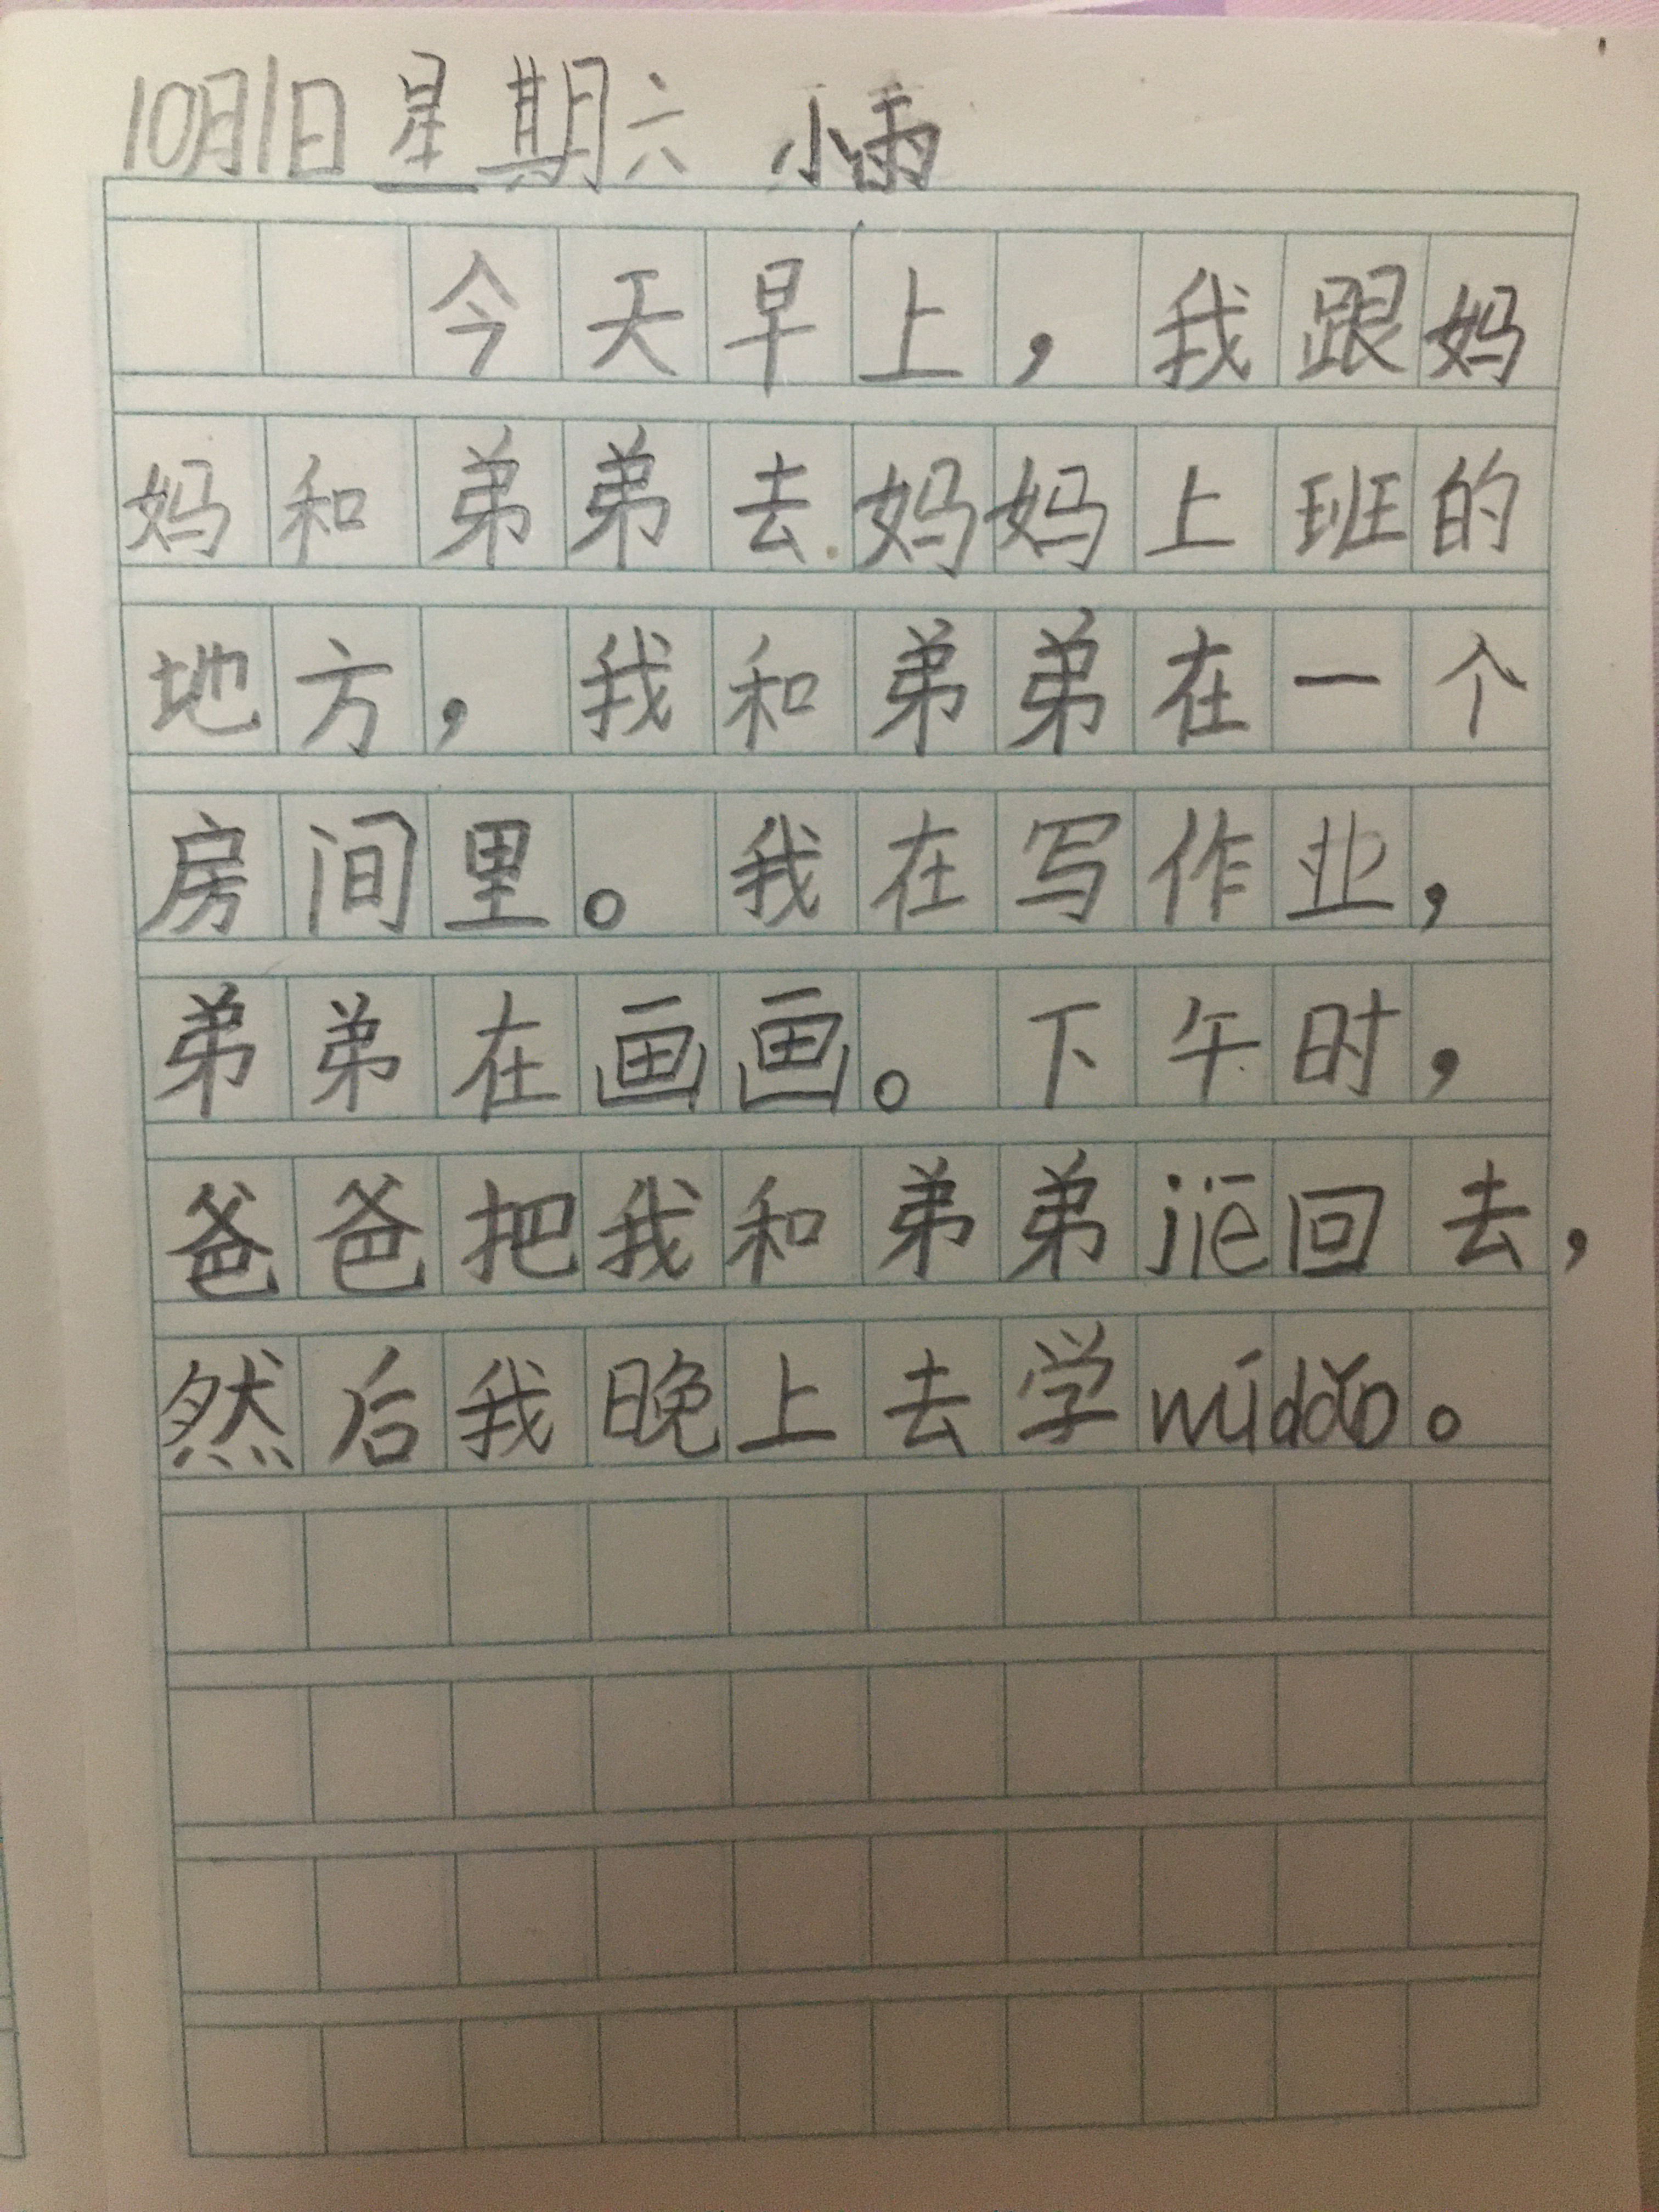 10月1日 星期六 小雨
今天早上，我跟妈
妈和弟弟去妈妈上班的
地方，我和弟弟在一个
房间里。我在写作业，
弟弟在画画。下午时，
爸爸把我和弟弟jiē回去，
然后我晚上去学wúdǎo。